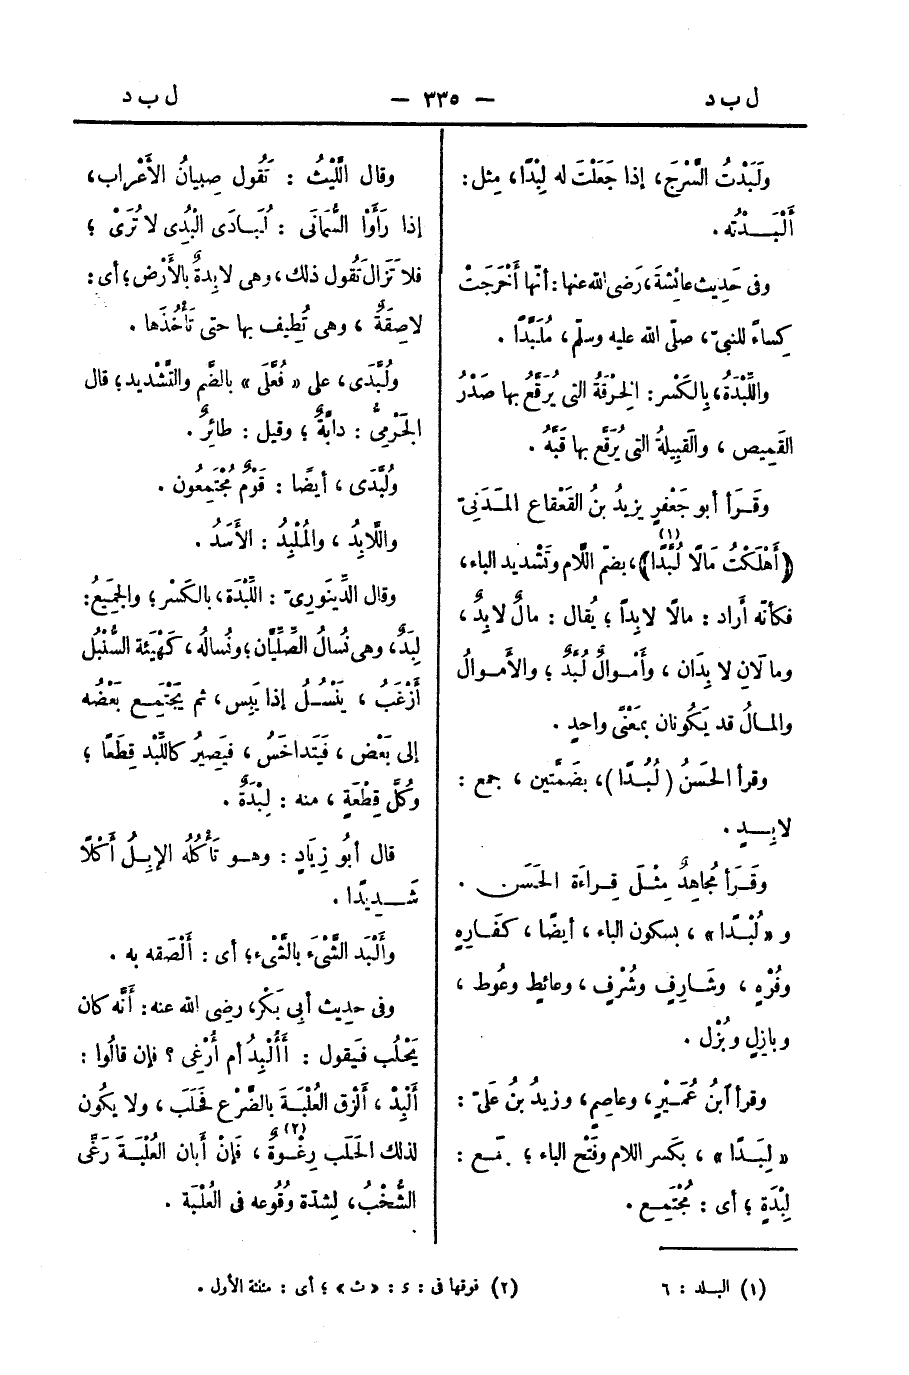 ل ب د
— ٣٣٥ —
ل ب د
ولَبَدْتُ السَّرْجَ، إذا جَعَلْتَ له لِبْدًا، مِثل :
أَلْبَـدْتُه .
وفى حَدِيث عائشة، رَضى الله عنها : أنّها أَخْرَجَتْ
كِساءً للنبىّ، صلّى الله عليه وسلّم، مُلَبَّدًا .
واللِّبْدَةُ، بِالكَسْر : الخِرْقَةُ التى يُرَقَّعُ بها صَدْرُ
القَمِيص ، والقَبِيلةُ التى يُرَقَّع بها قَبُّه .
وقَـرَأ أبو جَعْفرٍ يزيدُ بنُ القَعْقاع المَـدَنِىّ
﴿أَهْلَكْتُ مَالًا لُبَّدًا﴾(١)، بضمّ اللّام وتَشْديد الباء،
فكأنّه أراد : مالًا لابِداً ؛ يُقال : مالٌ لابِدٌ ،
ومالَانِ لابِدَان ، وأَمْـوالٌ لُبَّدٌ ؛ والأَمـوالُ
والمـالُ قد يَكُونان بمَعْنًى واحدٍ .
وقرأ الحَسَنُ (لُبُدًا)، بضَمَّتين ، جمع :
لابِـدٍ .
وقَـرَأ مُجاهِدٌ مِثْـلَ قِـراءَة الحَسَن .
و « لُبْـدًا » ، بسكون الباء ، أيضًا ، كَفَـارِهٍ
وفُرْهٍ ، وشَـارِفٍ وشُرْفٍ ، وعائطٍ وعُوط ،
وبازِلٍ وبُزْل .
وقرأ ابنُ عُمَـيْرٍ، وعاصِمٍ، وزيدُ بنُ علىّ :
« لِبَـدًا » ، بكسر اللام وفَتْح الباء ؛ جَمـع :
لِبْدَةٍ ؛ أى : مُجْتَمِـع .
وقال اللَّيْثُ : تَقُول صِبيانُ الأَعْراب،
إذا رَأَوْا السُّمَانَى : لُبَـادَى الْبُدِى لا تُرَىْ ؛
فلا تَزَالَ تَقُول ذلك، وهى لابِدةٌ بالأَرْض؛ أى :
لاصِقةٌ ، وهى تُطِيف بها حتى تَأْخُذَها .
ولُبَّدَى، على « فُعَّلَى » بالضَّم والتَّشْديد؛ قال
الجَرْمِىُّ : دابَّةٌ ؛ وقيل : طائِرٌ .
ولُبَّدَى ، أيضًا : قَوْمٌ مُجْتَمعُون .
واللَّابِدُ ، والمُلْبِدُ : الأَسَدُ .
وقال الدِّينَورِىّ : اللِّبْدَة، بالكَسْر؛ والجَمِيعُ :
لِبَدٌ، وهى نُسالُ الصِّلِّيَان؛ ونُسالُه، كَهَيْئة السُّنْبُل
أَزْغَبُ ، يَنْسُـلُ إذا يَبِس، ثم يَجْتَمِـع بَعْضُه
إلى بَعْض ، فَيَتَداخَسُ ، فيَصِيرُ كاللِّبْد قِطَعًا ؛
وكُلُّ قِطْعَةٍ ، منه : لِبْدَةٌ .
قال أبُو زِيَادٍ : وهـو تَأْكُلُه الإبِـلُ أَكْلًا
شَـدِيدًا .
وأَلْبَد الشَّىْءَ بالشَّىْء؛ أى : أَلْصَقه به .
وفى حديث أبى بَكْر، رضى الله عنه : أَنَّه كان
يَحْلُب فيَقول : أَأُلْبِدُ أم أُرْغِى ؟ فإن قالُوا :
أَلْبِدْ ، أَلْزق العُلْبَـةَ بالضَّرْع فحَلَب ، ولا يكُون
لذلك الحَلَب رِغْـوةٌ(٢) ، فَإنْ أَبان العُلْبَـةَ رَغَّى
الشُّخْبُ، لِشدّة وقُوعه فى العُلْبَة .
(١) البـلد : ٦
(٢) فوقها فى : ى : « ث » ؛ أى : مثلثة الأول .